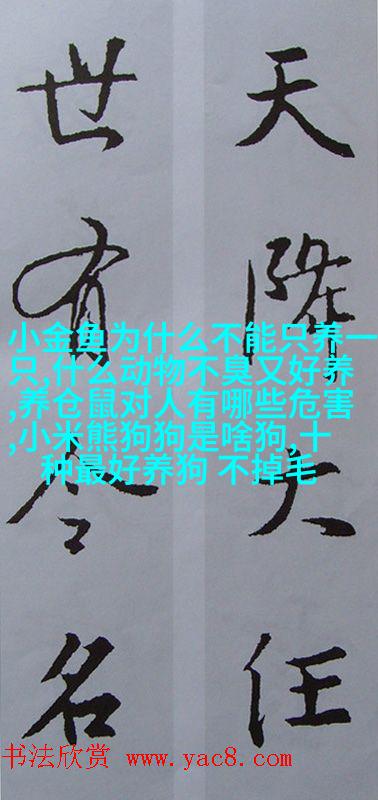 天降大任
世有令名
小金鱼为什么不能只养一
只,什么动物不臭又好养
,养仓鼠对人有哪些危害
,小米熊狗狗是啥狗,十
种最好养狗 不掉毛
书法欣赏 www.yac8.com